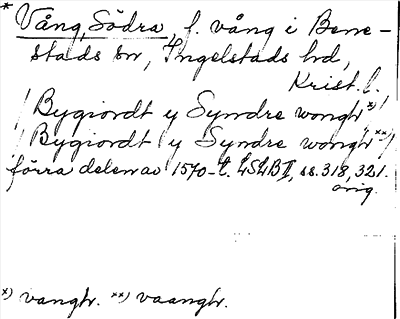 * Vång, Södra, f. vång i Bene-
stads sn, Ingelstads hd,
Krist. l.
/Bygiordt y Syndre wongh *)/
/Bygiordt y Syndre wongh **)/
förra delen av 1570-t. LSLB II, ss. 318, 321.
orig.
*) vangh. **) vaangh.